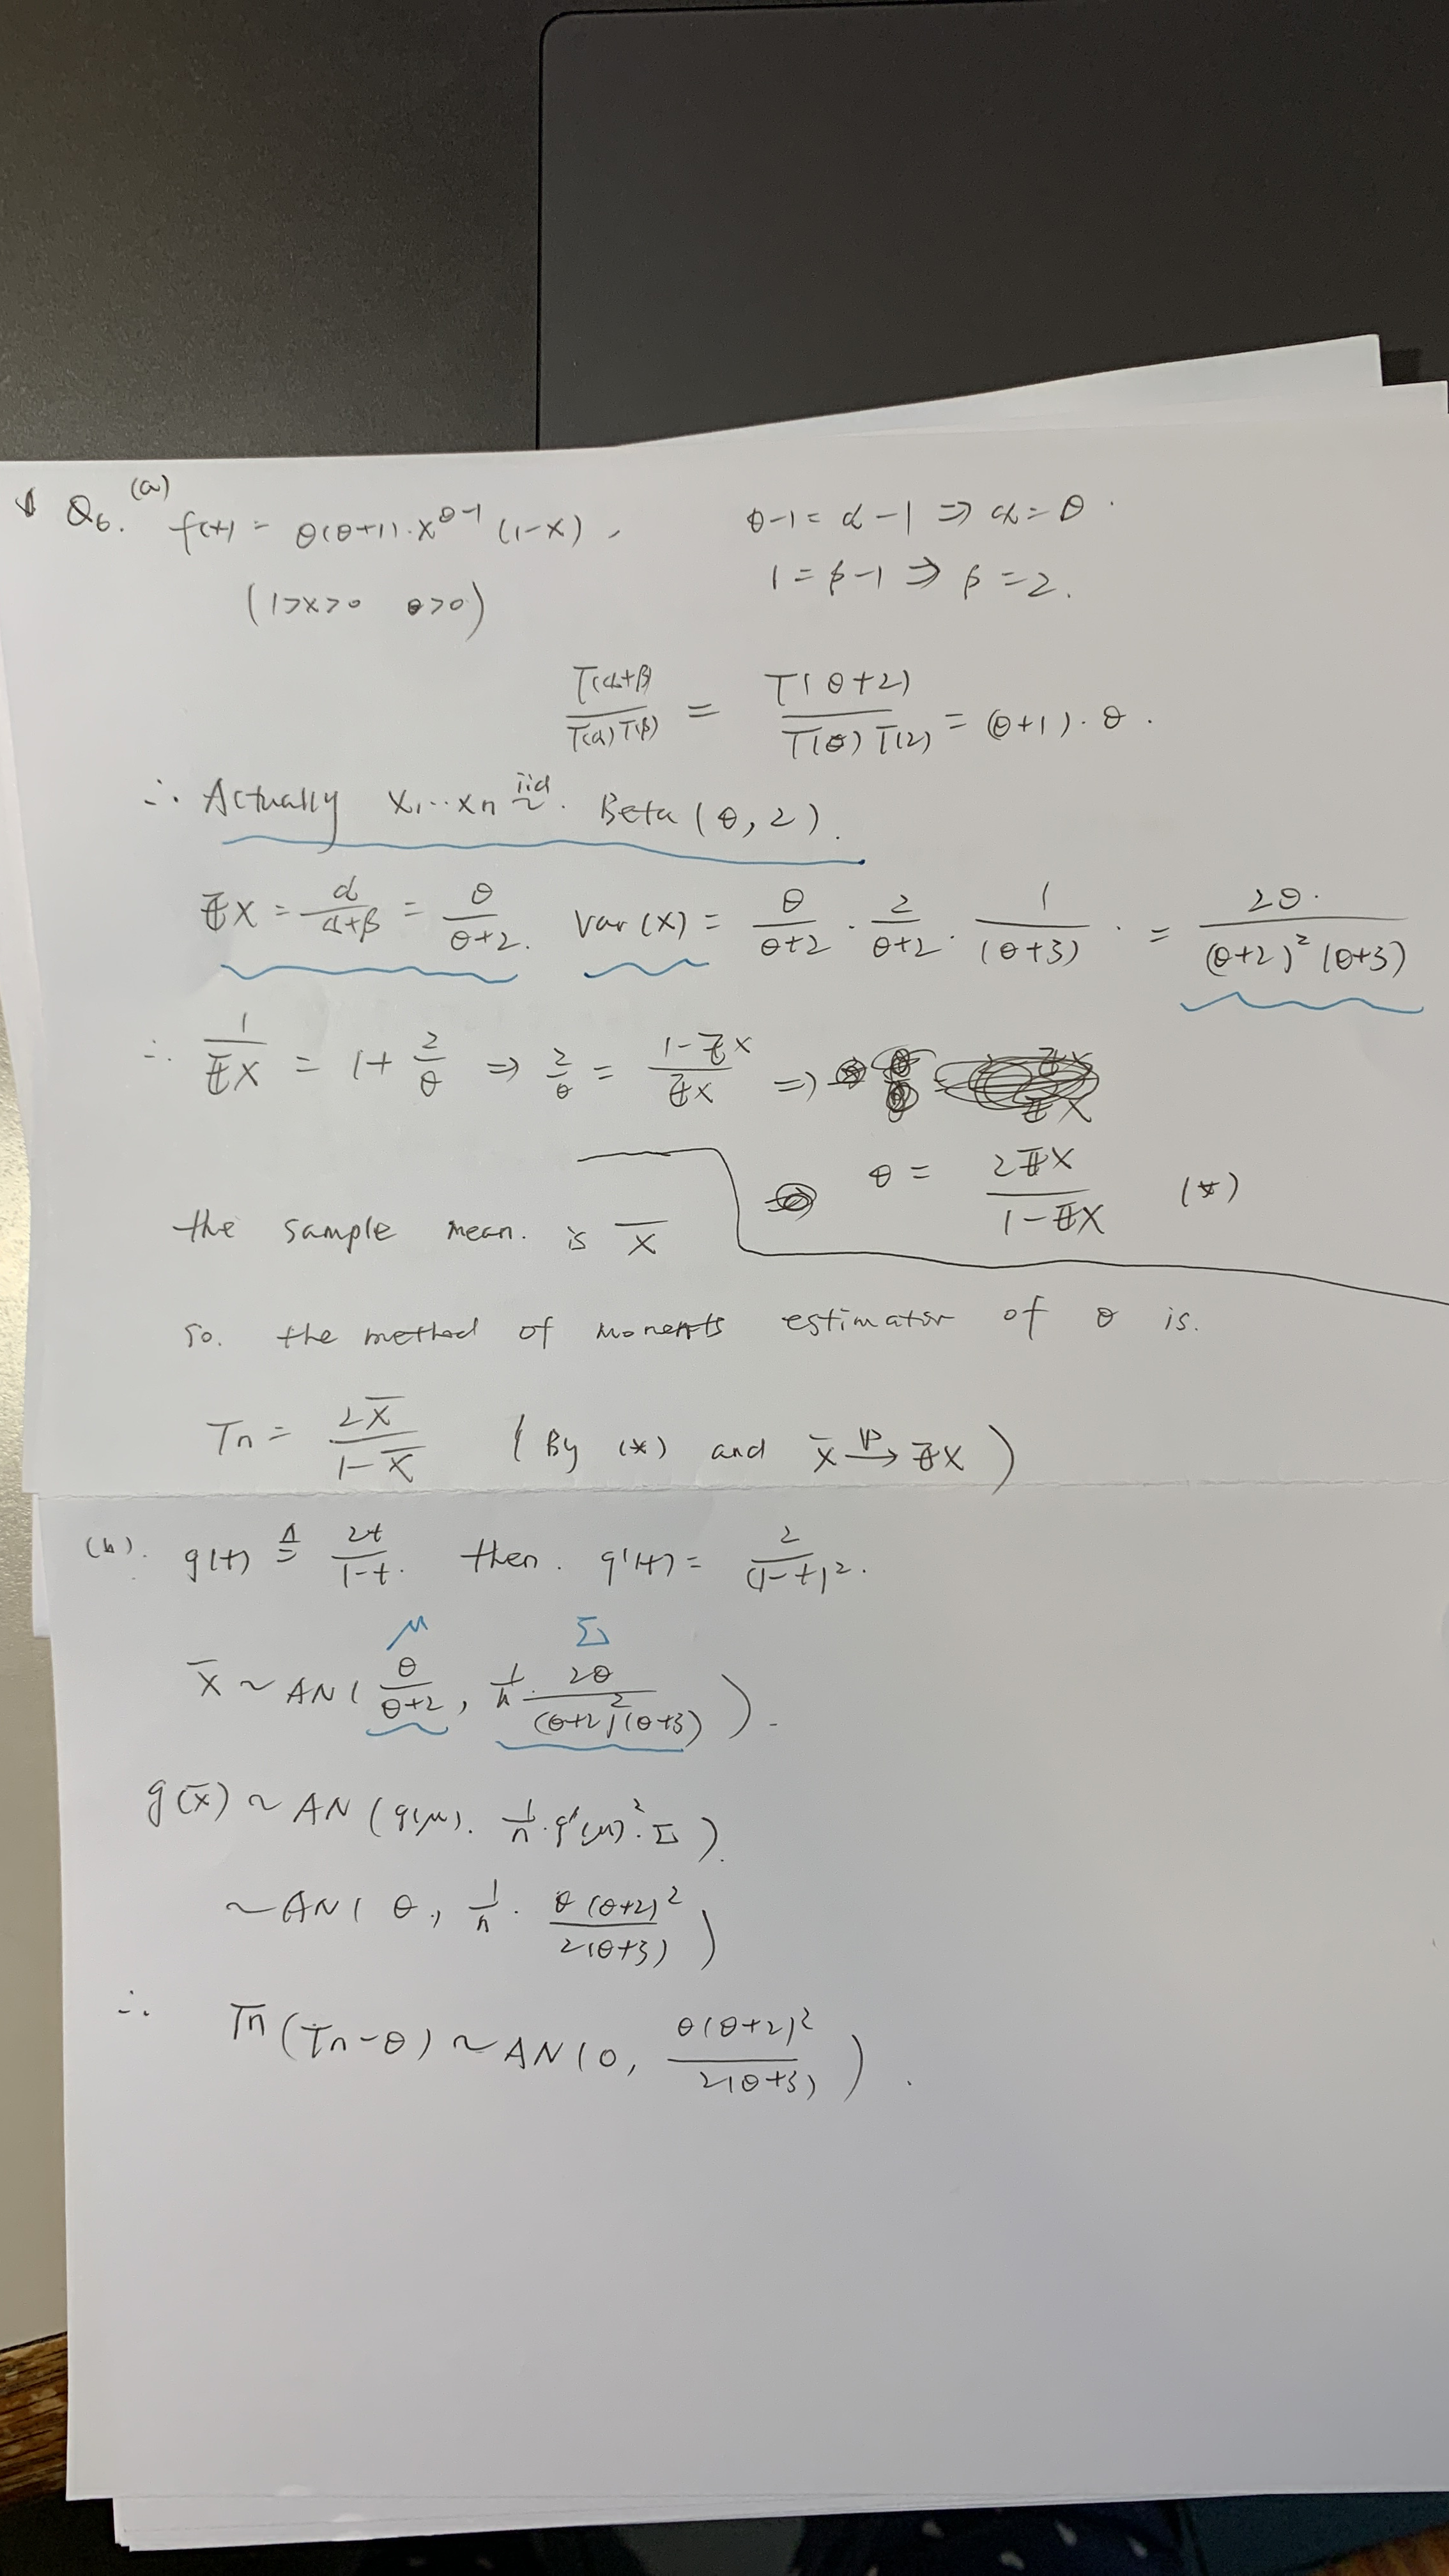 Q6. (a) f(x) = θ(θ+1)·x^{θ-1} (1-x), θ-1 = α-1 ⇒ α = θ.
(1>x>0 θ>0) 1 = β-1 ⇒ β = 2.
Γ(α+β) / Γ(α)Γ(β) = Γ(θ+2) / Γ(θ)Γ(2) = (θ+1)·θ.
∴ Actually X1...Xn iid ~ Beta(θ, 2).
EX = α/(α+β) = θ/(θ+2). Var(X) = θ/(θ+2) · 2/(θ+2) · 1/(θ+3) · = 2θ/((θ+2)²(θ+3))
∴ 1/EX = 1 + 2/θ ⇒ 2/θ = (1-EX)/EX ⇒
θ = 2EX/(1-EX) (*)
the sample mean. is X̄
So. the method of moments estimator of θ is.
Tn = 2X̄/(1-X̄) (By (*) and X̄ →^P EX)
(b). g(t) ≜ 2t/(1-t). then. g'(t) = 2/(1-t)².
μ Σ
X̄ ~ AN(θ/(θ+2), 1/n · 2θ/((θ+2)²(θ+3))).
g(X̄) ~ AN(g(μ). 1/n · g'(μ)² · Σ).
~ AN(θ, 1/n · θ(θ+2)²/(2(θ+3)))
∴ √n(Tn-θ) ~ AN(0, θ(θ+2)²/(2(θ+3))).